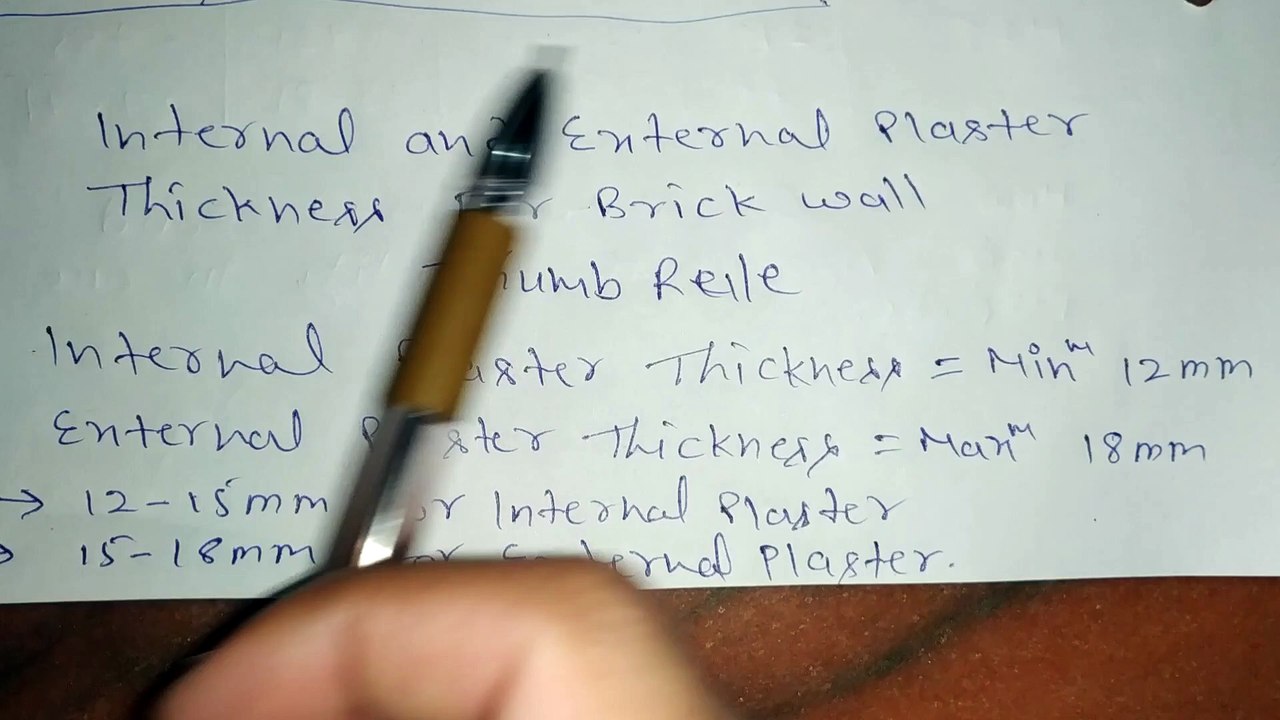 Internal and External Plaster
Thickness for Brick wall
Thumb Rule
Internal Plaster Thickness = Minᵐ 12mm
External Plaster Thickness = Maxᵐ 18mm
→ 12-15mm for Internal Plaster
→ 15-18mm for External Plaster.